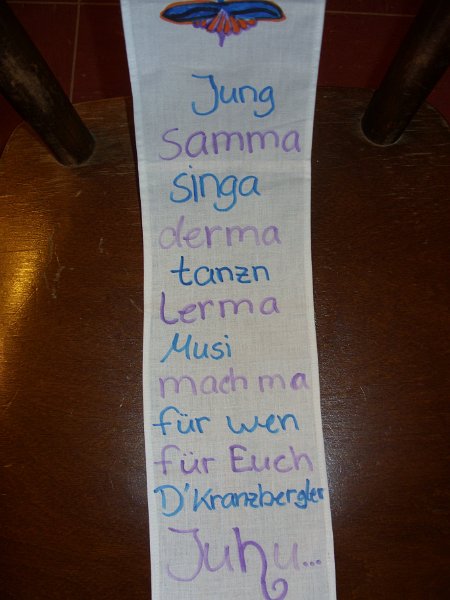 Jung
Samma
singa
derma
tanzn
Lerma
Musi
mach ma
für wen
für Euch
D'Kranzbergler
Juhu...